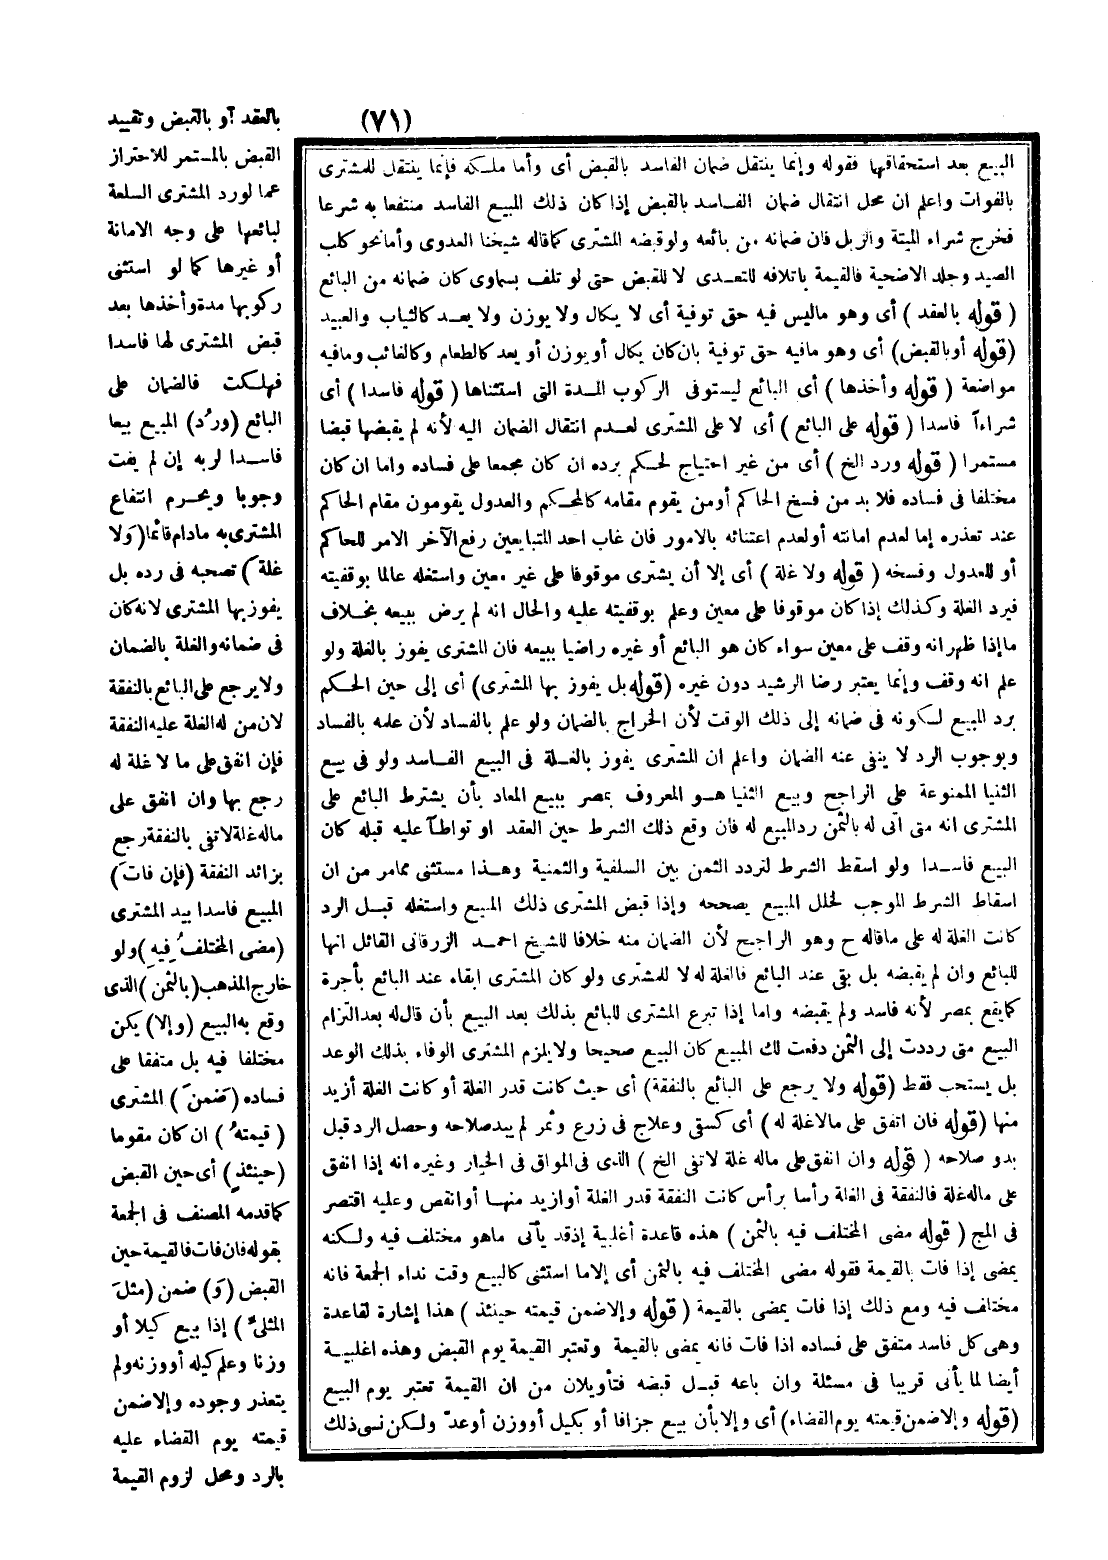 (٧١)
البيع بعد استحقاقها فقوله وإنما ينتقل ضمان الفاسد بالقبض أى وأما ملكه فإنما ينتقل للمشترى
بالفوات واعلم ان محل انتقال ضمان الفاسد بالقبض إذا كان ذلك المبيع الفاسد منتفعا به شرعا
فخرج شراء الميتة والزبل فان ضمانه من بائعه ولو قبضه المشترى كما قاله شيخنا العدوى وأما نحو كلب
الصيد وجلد الاضحية فالقيمة باتلافه للتعدى لا للقبض حتى لو تلف بسماوى كان ضمانه من البائع
( قوله بالعقد ) أى وهو ماليس فيه حق توفية أى لا يكال ولا يوزن ولا يعد كالثياب والعبيد
(قوله أو بالقبض) أى وهو مافيه حق توفية بان كان يكال أو يوزن أو يعد كالطعام وكالغائب ومافيه
مواضعة ( قوله وأخذها ) أى البائع ليستوفى الركوب المدة التى استثناها ( قوله فاسدا ) أى
شراءاً فاسدا ( قوله على البائع ) أى لا على المشترى لعدم انتقال الضمان اليه لأنه لم يقبضها قبضا
مستمرا ( قوله ورد الخ ) أى من غير احتياج لحكم برده ان كان مجمعا على فساده واما ان كان
مختلفا فى فساده فلا بد من فسخ الحاكم أومن يقوم مقامه كالمحكم والعدول يقومون مقام الحاكم
عند تعذره إما لعدم امانته أو لعدم اعتنائه بالامور فان غاب احد المتبايعين رفع الآخر الامر للحاكم
أو للعدول وفسخه ( قوله ولا غلة ) أى إلا أن يشترى موقوفا على غير معين واستغله عالما بوقفيته
فيرد الغلة وكذلك إذا كان موقوفا على معين وعلم بوقفيته عليه والحال انه لم يرض ببيعه بخلاف
ما إذا ظهر انه وقف على معين سواء كان هو البائع أو غيره راضيا ببيعه فان المشترى يفوز بالغلة ولو
علم انه وقف وإنما يعتبر رضا الرشيد دون غيره (قوله بل يفوز بها المشترى) أى إلى حين الحكم
برد المبيع لكونه فى ضمانه إلى ذلك الوقت لأن الخراج بالضمان ولو علم بالفساد لأن علمه بالفساد
وبوجوب الرد لا ينفى عنه الضمان واعلم ان المشترى يفوز بالغلة فى البيع الفاسد ولو فى بيع
الثنيا الممنوعة على الراجح وبيع الثنيا هو المعروف بمصر ببيع المعاد بأن يشترط البائع على
المشترى انه متى اتى له بالثمن رد المبيع له فان وقع ذلك الشرط حين العقد او تواطآ عليه قبله كان
البيع فاسدا ولو اسقط الشرط لتردد الثمن بين السلفية والثمنية وهذا مستثنى ممامر من ان
اسقاط الشرط الموجب لخلل المبيع يصححه وإذا قبض المشترى ذلك المبيع واستغله قبل الرد
كانت الغلة له على ماقاله ح وهو الراجح لأن الضمان منه خلافا للشيخ احمد الزرقانى القائل انها
للبائع وان لم يقبضه بل بقى عند البائع فالغلة له لا للمشترى ولو كان المشترى ابقاء عند البائع بأجرة
كما يقع بمصر لأنه فاسد ولم يقبضه واما إذا تبرع المشترى للبائع بذلك بعد البيع بأن قال له بعد التزام
البيع متى رددت إلى الثمن دفعت لك المبيع كان البيع صحيحا ولا يلزم المشترى الوفاء بذلك الوعد
بل يستحب فقط (قوله ولا يرجع على البائع بالنفقة) أى حيث كانت قدر الغلة أو كانت الغلة أزيد
منها (قوله فان اتفق على مالاغلة له ) أى كسقى وعلاج فى زرع وثمر لم يبد صلاحه وحصل الرد قبل
بدو صلاحه ( قوله وان انفق على ماله غلة لاتفى الخ ) الذى فى المواق فى الخيار وغيره انه إذا انفق
على ماله غلة فالنفقة فى الغلة رأسا برأس كانت النفقة قدر الغلة أو ازيد منها أو انقص وعليه اقتصر
فى المج ( قوله مضى المختلف فيه بالثمن ) هذه قاعدة أغلبية إذ قد يأتى ماهو مختلف فيه ولكنه
يمضى إذا فات بالقيمة فقوله مضى المختلف فيه بالثمن أى إلاما استثنى كالبيع وقت نداء الجمعة فانه
مختلف فيه ومع ذلك إذا فات يمضى بالقيمة ( قوله وإلاضمن قيمته حينئذ ) هذا إشارة لقاعدة
وهى كل فاسد متفق على فساده اذا فات فانه يمضى بالقيمة وتعتبر القيمة يوم القبض وهذه اغلبية
أيضا لما يأتى قريبا فى مسئلة وان باعه قبل قبضه فتأويلان من ان القيمة تعتبر يوم البيع
(قوله وإلاضمن قيمته يوم القضاء) أى وإلا بأن بيع جزافا أو بكيل أو وزن أو عدّ ولكن نسى ذلك
بالعقد أو بالقبض وتقييد
القبض بالمستمر للاحتراز
عما لو رد المشترى السلعة
لبائعها على وجه الامانة
أو غيرها كما لو استثنى
ركوبها مدة وأخذها بعد
قبض المشترى لها فاسدا
فهلكت فالضمان على
البائع (ورُد) المبيع بيعا
فاسدا لربه إن لم يفت
وجوبا ويحرم انتفاع
المشترى به مادام قائما (وَلا
غلة) تصحبه فى رده بل
يفوز بها المشترى لانه كان
فى ضمانه والغلة بالضمان
ولا يرجع على البائع بالنفقة
لان من له الغلة عليه النفقة
فإن انفق على ما لا غلة له
رجع بها وان انفق على
ماله غلة لاتفى بالنفقة رجع
بزائد النفقة (فإن فاتَ)
المبيع فاسدا بيد المشترى
(مضى المختلفُ فِيهِ) ولو
خارج المذهب (بالثمن) الذى
وقع به البيع (وإلا) يكن
مختلفا فيه بل متفقا على
فساده (ضمنَ) المشترى
( قيمتهُ ) ان كان مقوما
(حينئذٍ) أى حين القبض
كما قدمه المصنف فى الجمعة
بقوله فان فات فالقيمة حين
القبض (وَ) ضمن (مثلَ
المثلىّ) إذا بيع كيلا أو
وزنا وعلم كيله أو وزنه ولم
يتعذر وجوده وإلاضمن
قيمته يوم القضاء عليه
بالرد ومحل لزوم القيمة